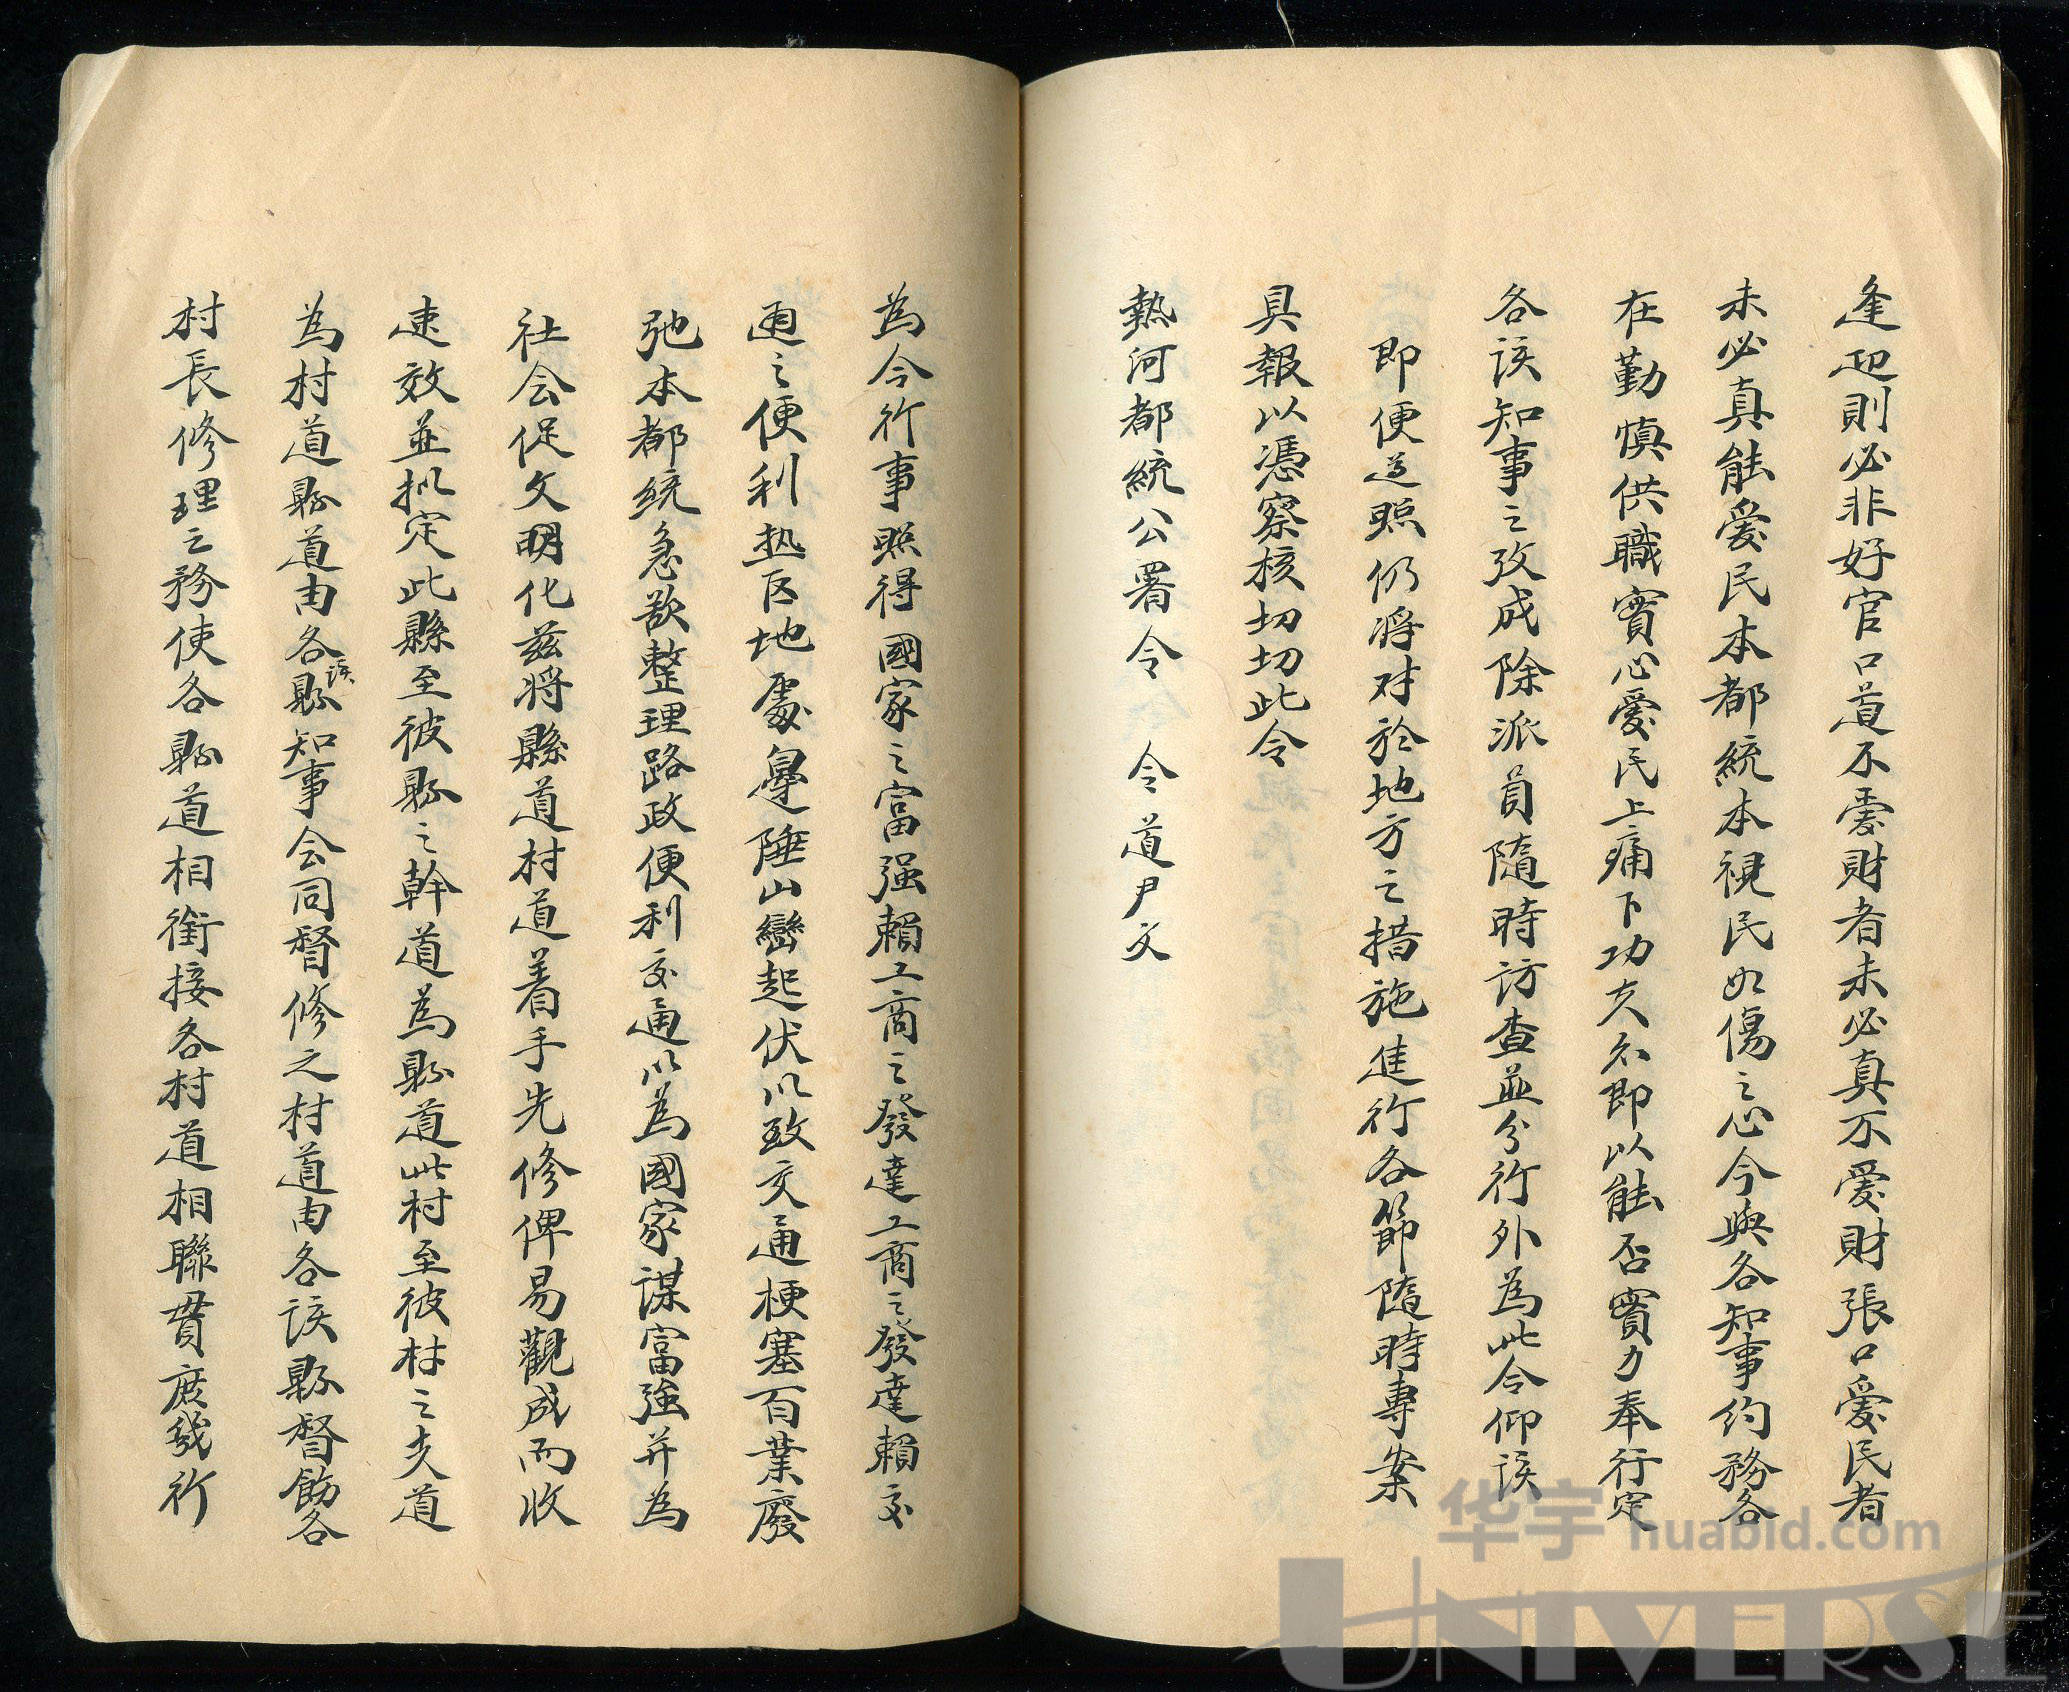 逢迎則必非好官口道不愛財者未必真不愛財張口愛民者
未必真能爱民本都統本視民如傷之心今與各知事約務各
在勤慎供職實心愛民上痛下功夫不即以能否實力奉行定
各该知事之攷成除派員隨時訪查並分行外為此令仰该
即便遵照仍将对於地方之措施進行各節随時專案
具報以憑察核切切此令
熱河都統公署令 令道尹文
為令行事照得國家之富强賴工商之發達工商之發達賴交
通之便利热区地處邊陲山巒起伏以致交通梗塞百業廢
弛本都統急欲整理路政便利交通以為國家謀富強并為
社会促文明化兹将縣道村道着手先修俾易觀成而收
速效並拟定此縣至彼縣之幹道為縣道此村至彼村之夫道
為村道縣道由各该縣知事会同督修之村道由各该縣督飭各
村長修理之務使各縣道相銜接各村道相聯貫庶幾行
华宇 huabid.com
UNIVERSE